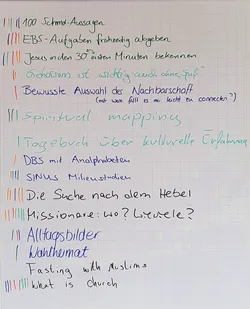 100 Schmd-Aussagen
EBS-Aufgaben frühzeitig abgeben
Jesus in den 30 ersten Minuten bekennen
Gehorsam ist wichtig auch ohne "Ja"
Bewusste Auswahl der Nachbarschaft
(mit wem fällt es mir leicht zu connecten?)
Spiritual mapping
Tagebuch über kulturelle Erfahrung
DBS mit Analphabeten
SINUS Milieustudien
Die Suche nach dem Hebel
Missionare: wo? Wieviele?
Alltagsbilder
Wahlheimat
Fasting with Muslims
What is church